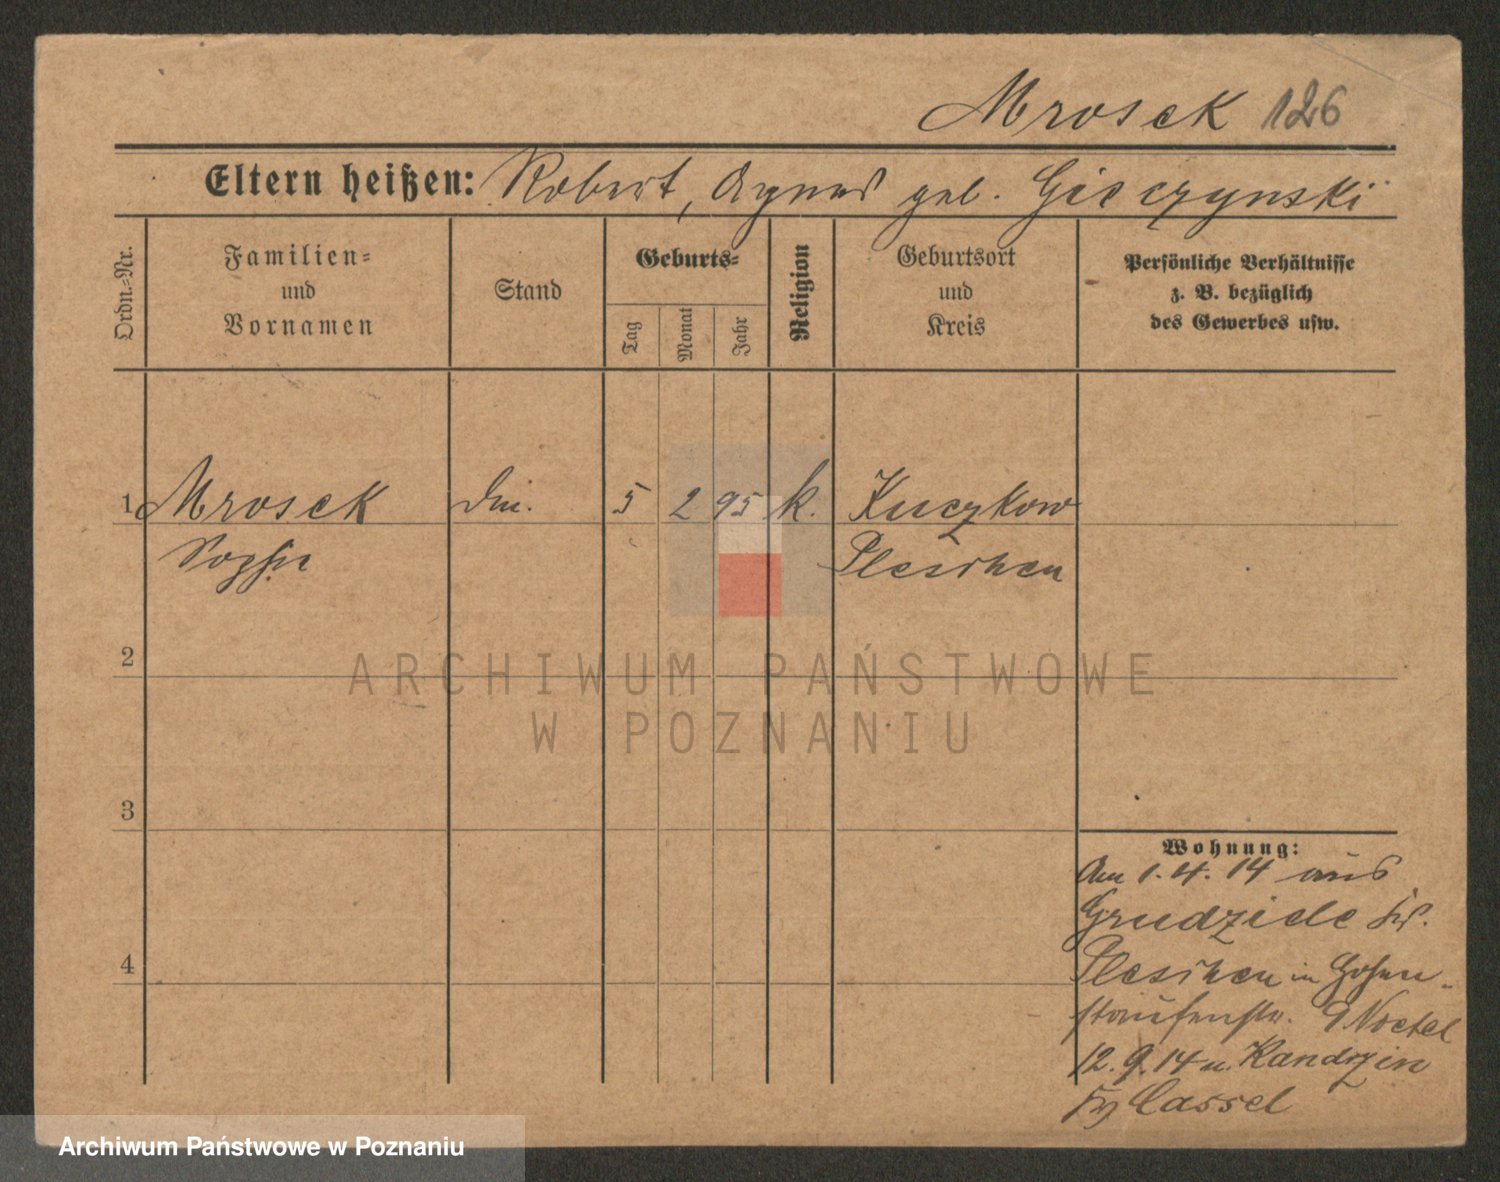 Mrosek 126
Eltern heißen: Robert, Agnes geb. Gieczynski
Ordn.-Nr.
Familien-
und
Vornamen
Stand
Geburts-
Tag
Monat
Jahr
Religion
Geburtsort
und
Kreis
Persönliche Verhältnisse
z. B. bezüglich
des Gewerbes usw.
1 Mrosek 5 2 95 k. Kuczkow
Sophie Pleschen
2
3
4
Wohnung:
Am 1.4.14 aus
Grudziele
Pleschen in Hohen-
staufenstr. 9 Noetel
12.9.14 n. Kandrzin
Cassel
ARCHIWUM PAŃSTWOWE
W POZNANIU
Archiwum Państwowe w Poznaniu